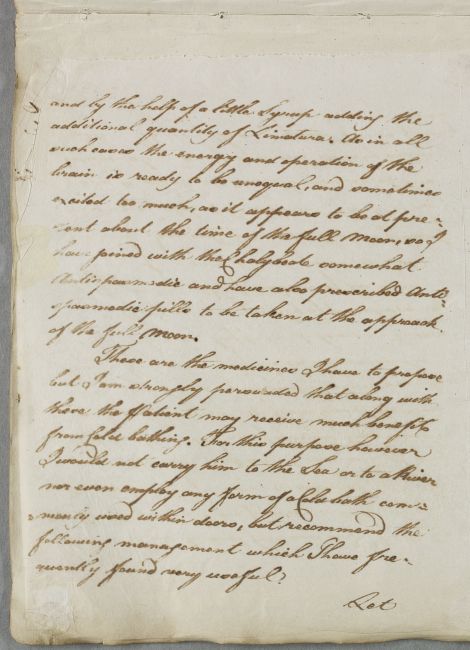 and by the help of a little Syrup adding the
additional quantity of Limatura. As in all
such cases the energy and operation of the
brain is ready to be unequal, and sometimes
excited too much, as it appears to be at pre-
sent about the time of the full Moon, so I
have joined with the Chalybeate somewhat
Antispasmodic and have also prescribed Anti-
spasmodic pills to be taken at the approach
of the full Moon.
These are the medicines I have to propose
but I am strongly persuaded that along with
these the Patient may receive much benefit
from Cold bathing. For this purpose however
I would not carry him to the Sea or to a River
nor even employ any form of a Cold bath com-
monly used within doors, but recommend the
following management which I have fre-
quently found very useful.
Let